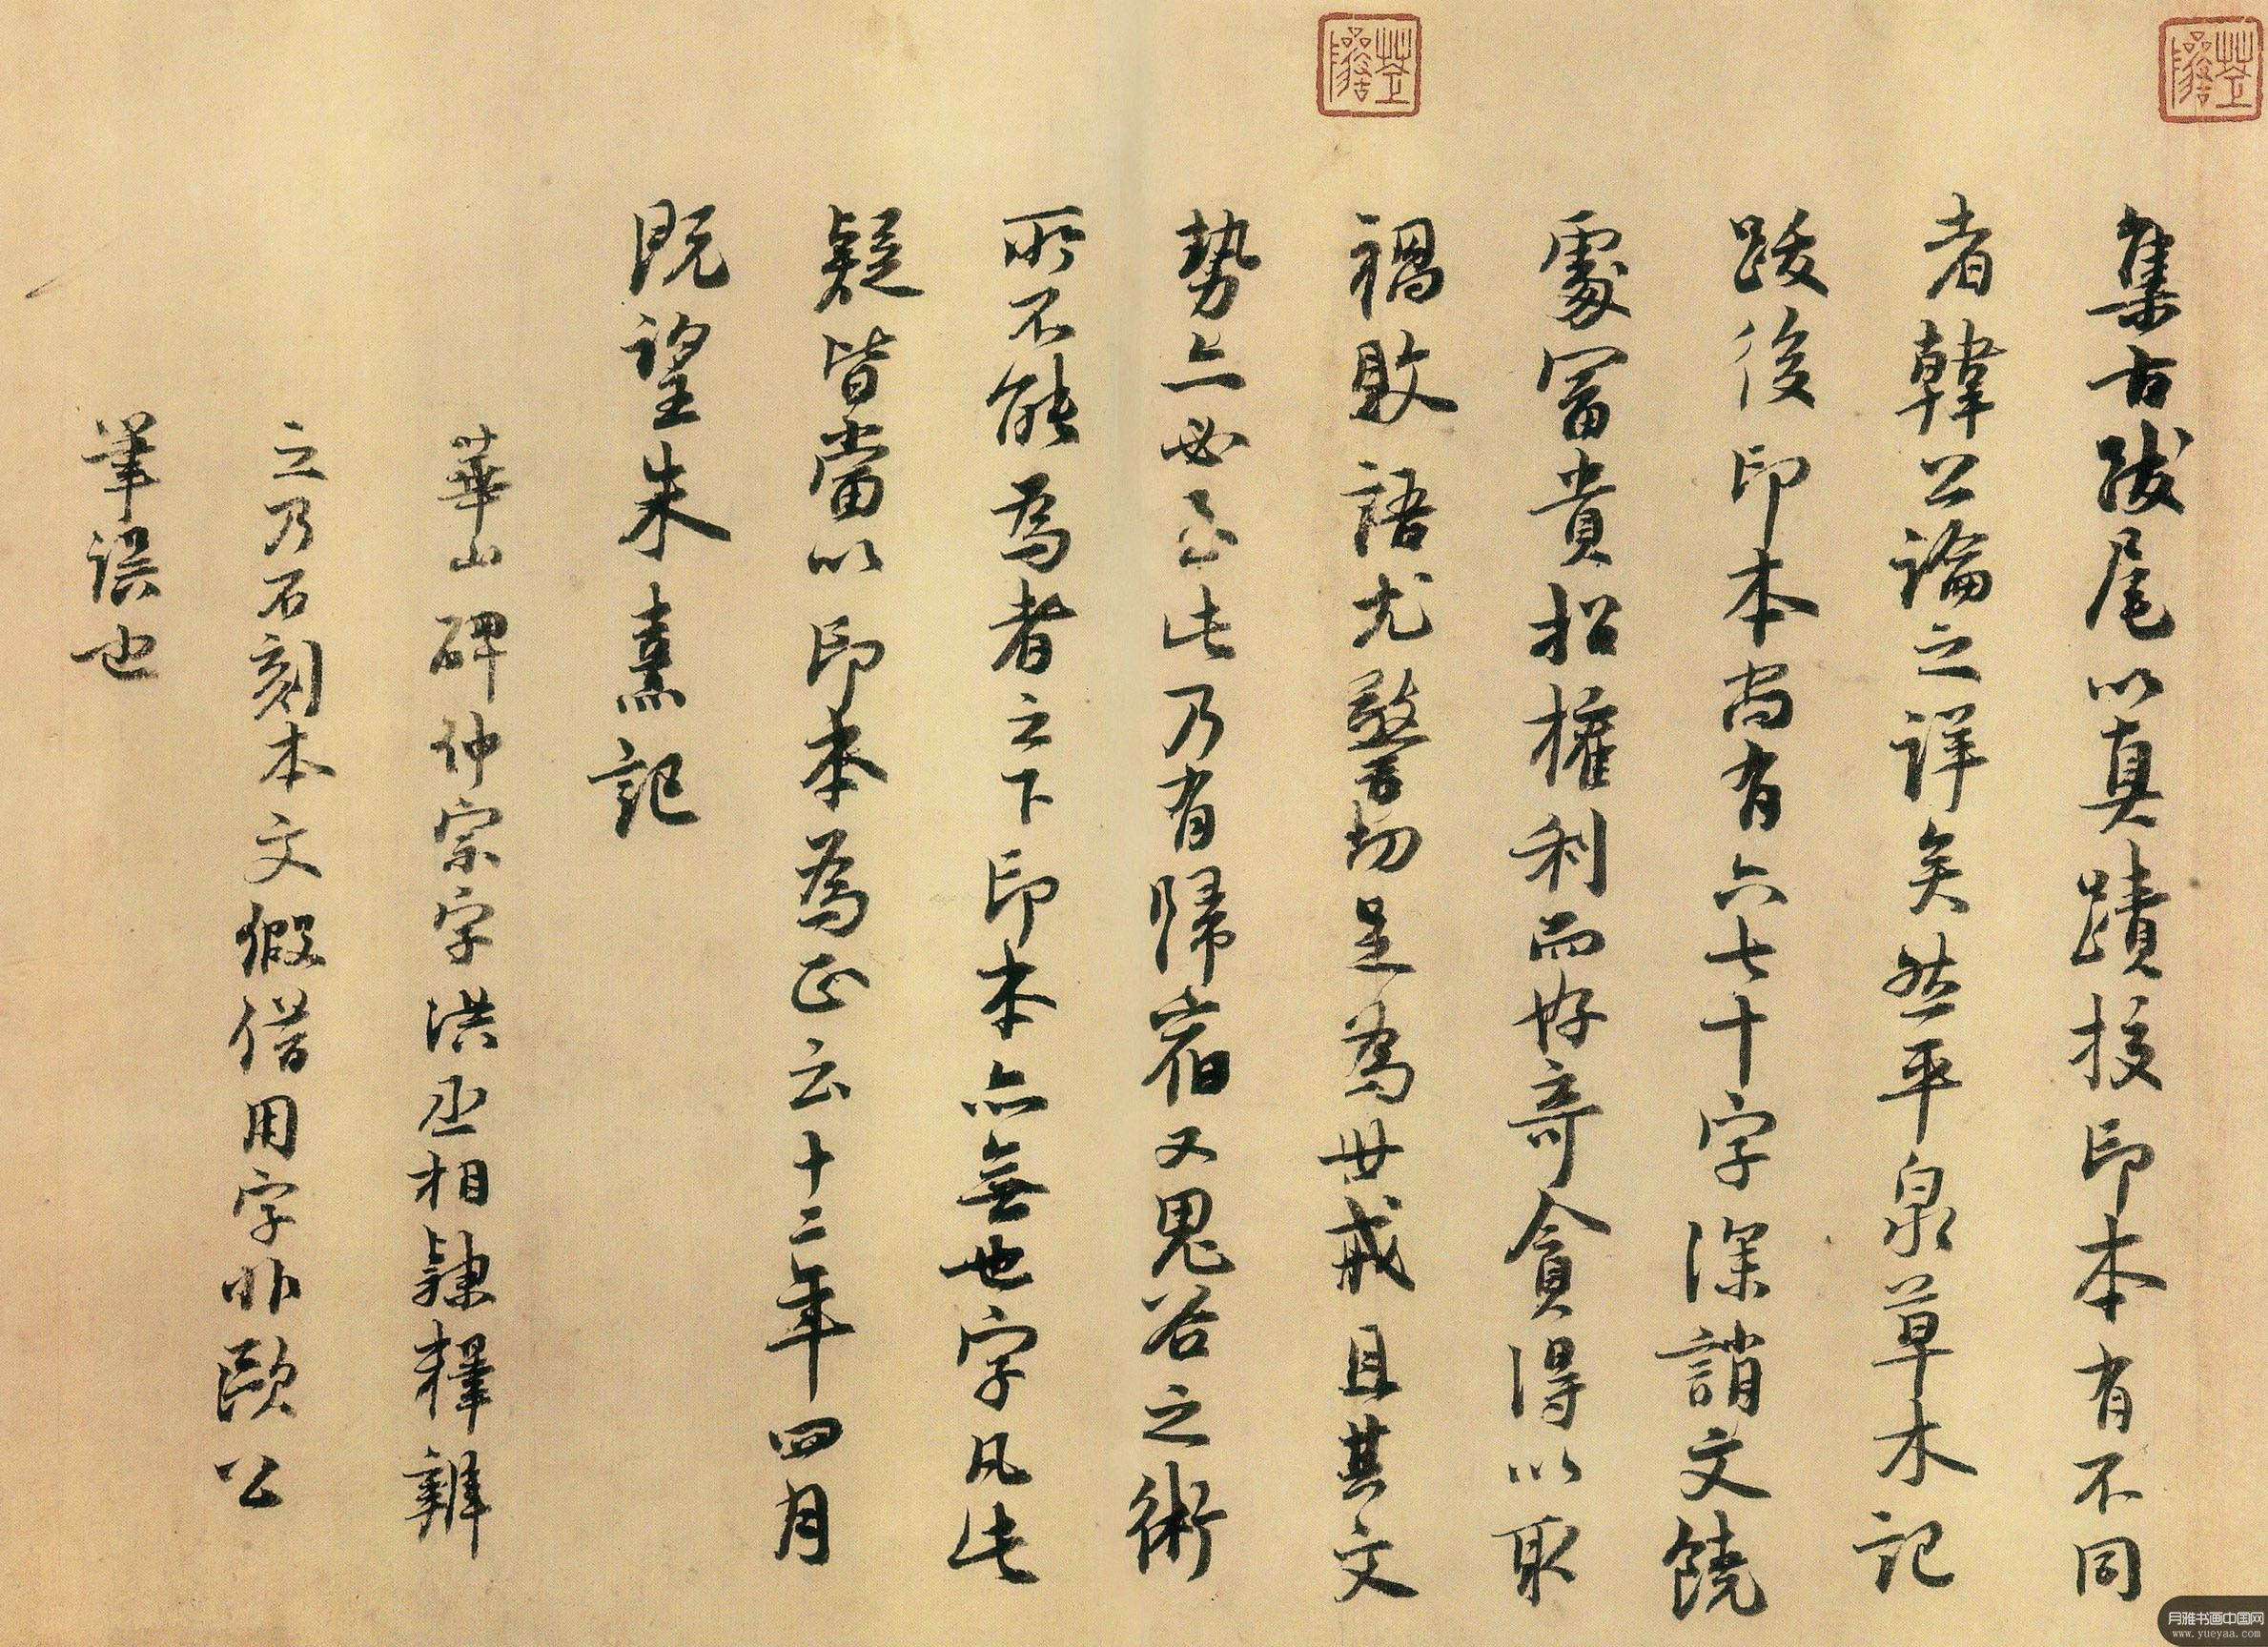 集古跋尾以真蹟挍印本有不同
者韓公論之詳矣然平泉草木記
跋後印本尚有六七十字深誚文饒
處富貴招權利而好奇貪得以取
禍敗語尤警切足為世戒且其文
勢亦必至此乃有歸宿又鬼谷之術
所不能為者之下印本亦無也字凡此
疑皆當以印本為正云十二年四月
既望朱熹記
華山碑仲宗字洪丞相隸釋辨
之乃石刻本文假借用字非歐公
筆誤也
月雅书画中国网
www.yueyaa.com